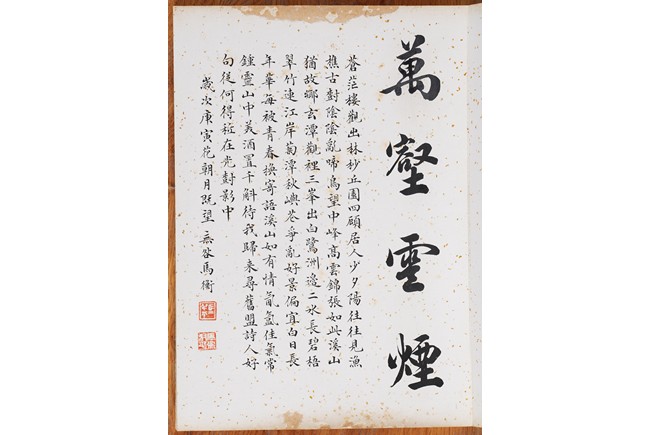 萬壑雲煙
蒼茫樓觀出林杪丘園四顧居人少夕陽往往見漁
樵古陰陰亂啼鳥望中峰高雲錦張如此溪山
猶故鄉玄潭觀裡三峯出白鷺洲邊二水長碧梧
翠竹連江岸菊潭秋嶼花爭亂好景偏宜白日長
年華每被青春換寄語溪山如有情氤氳佳氣常
鍾靈山中美酒置千斛待我歸來尋舊盟詩人好
句從何得在光影中
歲次庚寅花朝月既望 无咎馬衡